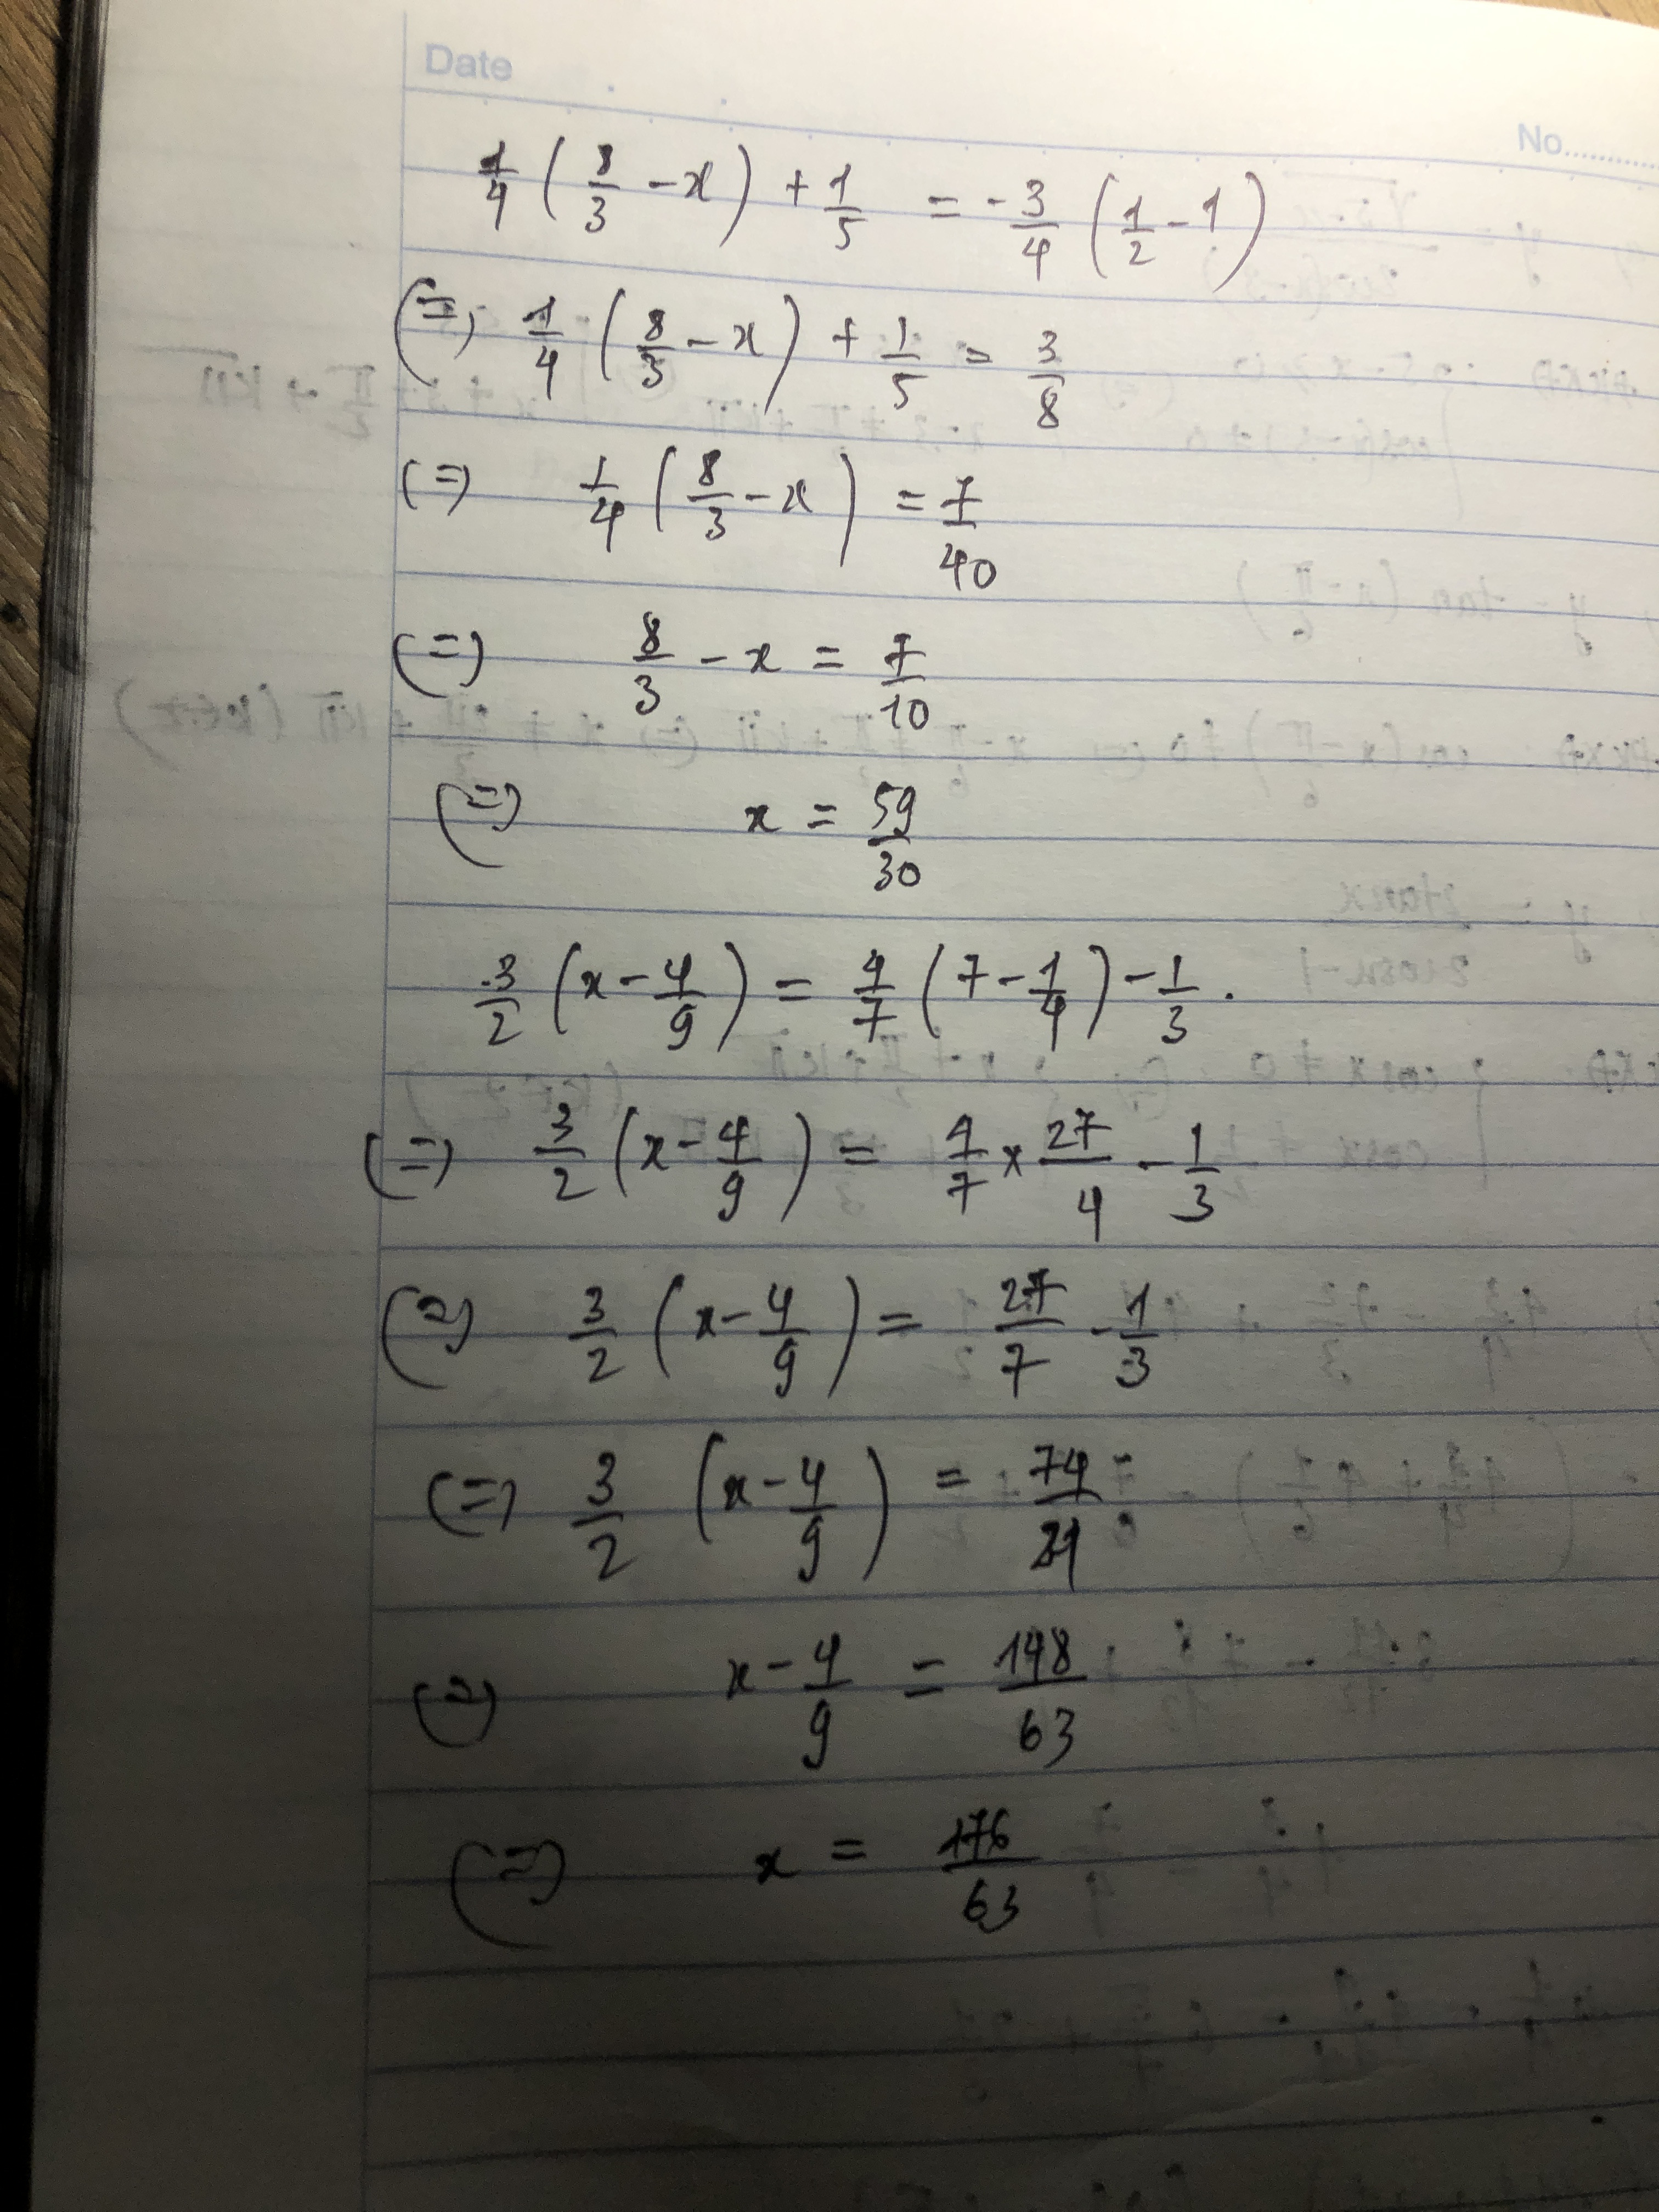 Date
No..........
1/4 (8/3 - x) + 1/5 = -3/4 (1/2 - 1)
(=) 1/4 (8/3 - x) + 1/5 = 3/8
(=) 1/4 (8/3 - x) = 7/40
(=) 8/3 - x = 7/10
(=) x = 59/30
3/2 (x - 4/9) = 4/7 (7 - 1/4) - 1/3.
(=) 3/2 (x - 4/9) = 4/7 × 27/4 - 1/3
(=) 3/2 (x - 4/9) = 27/7 - 1/3
(=) 3/2 (x - 4/9) = 74/21
(=) x - 4/9 = 148/63
(=) x = 176/63